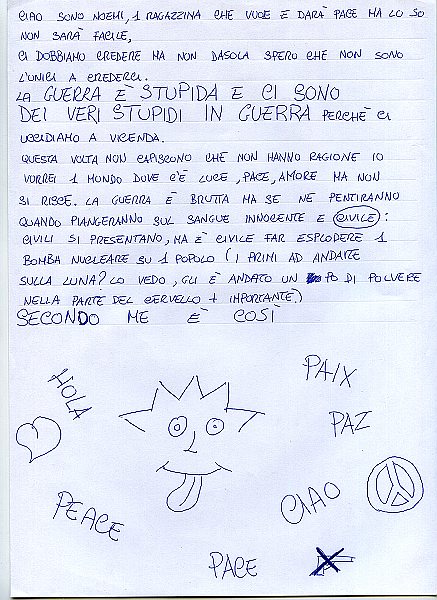 CIAO SONO NOEMI, 1 RAGAZZINA CHE VUOE E DARÀ PACE MA LO SO
NON SARÀ FACILE,
CI DOBBIAMO CREDERE MA NON DASOLA SPERO CHE NON SONO
L'UNICI A CREDERCI.
LA GUERRA È STUPIDA E CI SONO
DEI VERI STUPIDI IN GUERRA PERCHÈ CI
UCCIDIAMO A VICENDA.
QUESTA VOLTA NON CAPISCONO CHE NON HANNO RAGIONE IO
VORREI 1 MONDO DOVE C'È LUCE, PACE, AMORE MA NON
SI RIESCE. LA GUERRA È BRUTTA MA SE NE PENTIRANNO
QUANDO PIANGERANNO SUL SANGUE INNOCENTE E CIVILE:
CIVILI SI PRESENTANO, MA È CIVILE FAR ESPLODERE 1
BOMBA NUCLEARE SU 1 POPOLO (I PRIMI AD ANDARE
SULLA LUNA? LO VEDO, GLI È ANDATO UN PO DI POLVERE
NELLA PARTE DEL CERVELLO + IMPORTANTE.)
SECONDO ME È COSÌ
HOLA
PAIX
PAZ
PEACE
CIAO
PACE